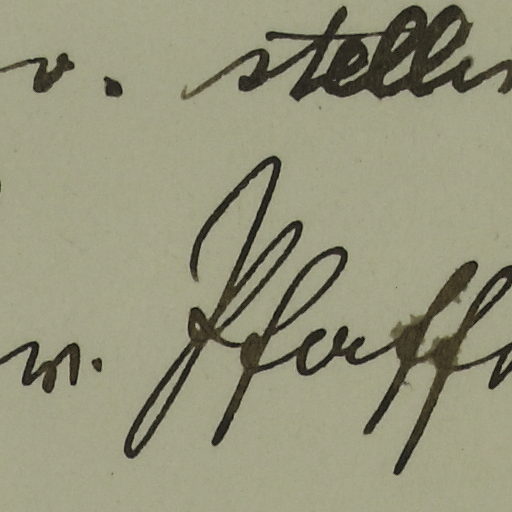 v. stelln
w. Pfaff